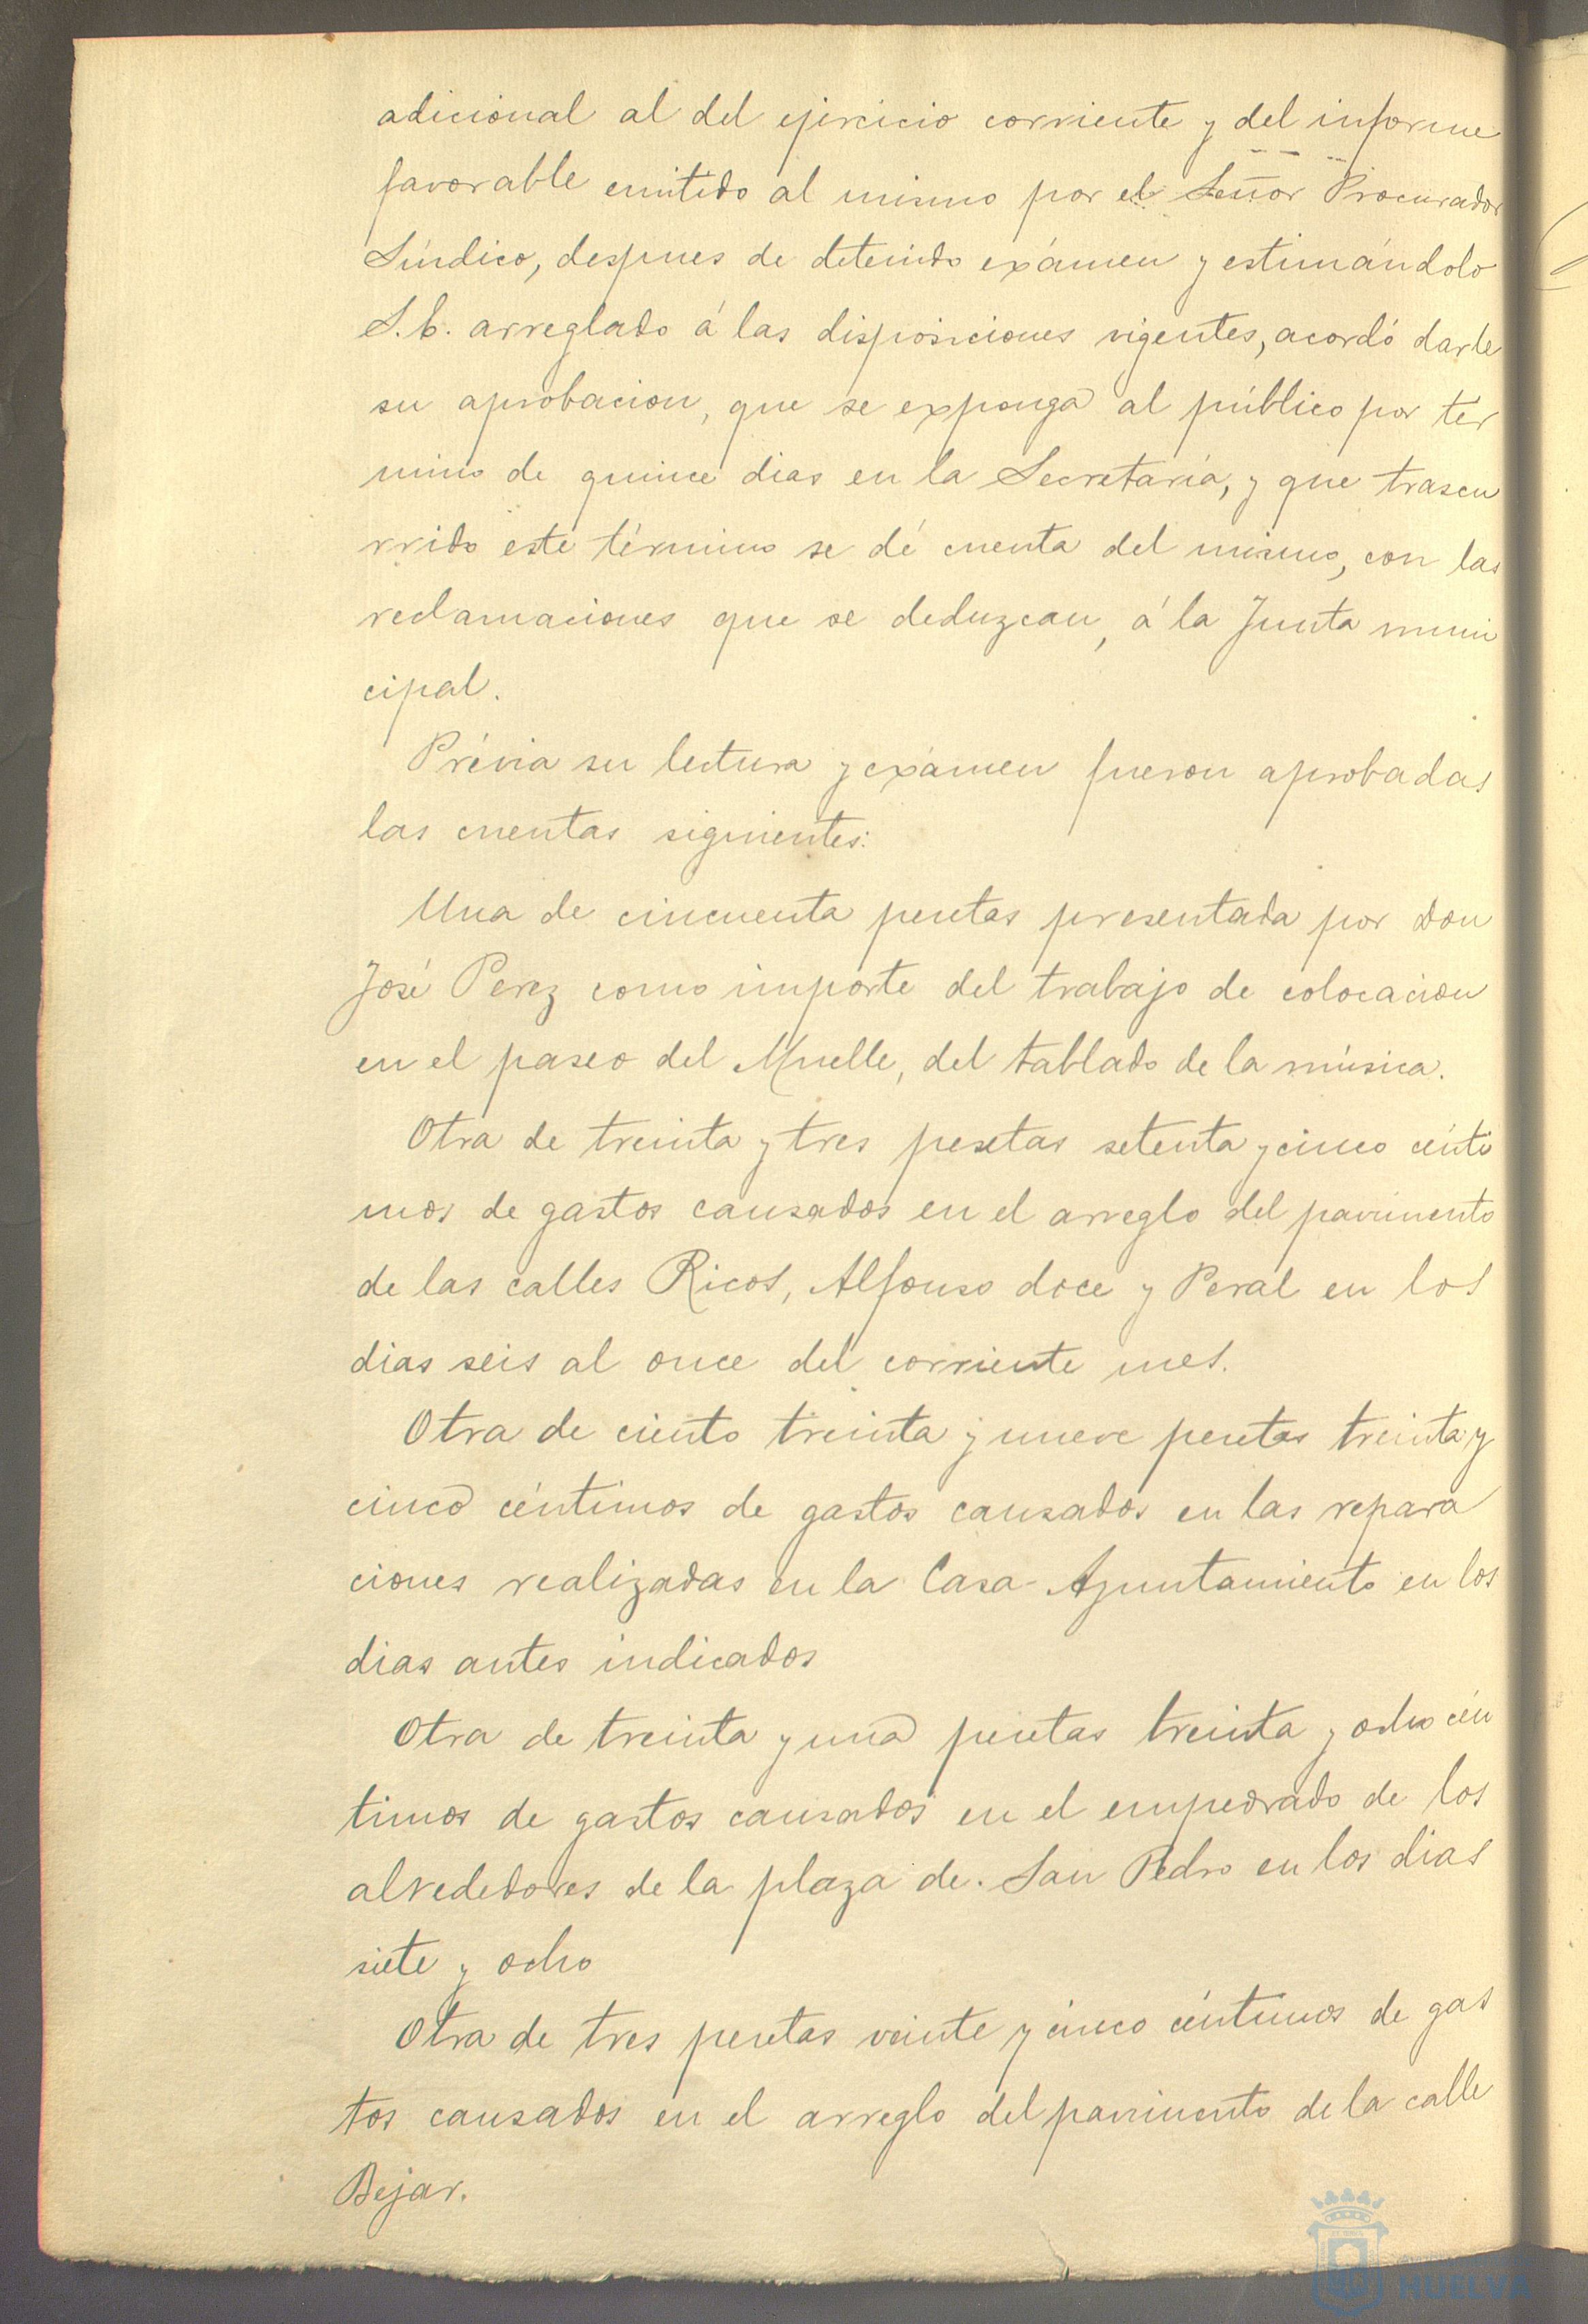 adicional al del ejercicio corriente y del informe
favorable emitido al mismo por el Señor Procurador
Síndico, despues de detenido exámen y estimándolo
S.E. arreglado á las disposiciones vigentes, acordó darle
su aprobacion, que se exponga al público por tér
mino de quince dias en la Secretaría, y que trascu
rrido este término se dé cuenta del mismo, con las
reclamaciones que se deduzcan, á la Junta muni
cipal.
Prévia su lectura y exámen fueron aprobadas
las cuentas siguientes:
Una de cincuenta pesetas presentada por Don
José Perez como importe del trabajo de colocacion
en el paseo del Muelle, del tablado de la música.
Otra de treinta y tres pesetas setenta y cinco cénti
mos de gastos causados en el arreglo del pavimento
de las calles Ricos, Alfonso doce y Peral en los
dias seis al once del corriente mes.
Otra de ciento treinta y nueve pesetas treinta y
cinco céntimos de gastos causados en las repara
ciones realizadas en la Casa Ayuntamiento en los
dias antes indicados
Otra de treinta y una pesetas treinta y ocho cén
timos de gastos causados en el empedrado de los
alrededores de la plaza de San Pedro en los dias
siete y ocho
Otra de tres pesetas veinte y cinco céntimos de gas
tos causados en el arreglo del pavimento de la calle
Bejar.
HUELVA